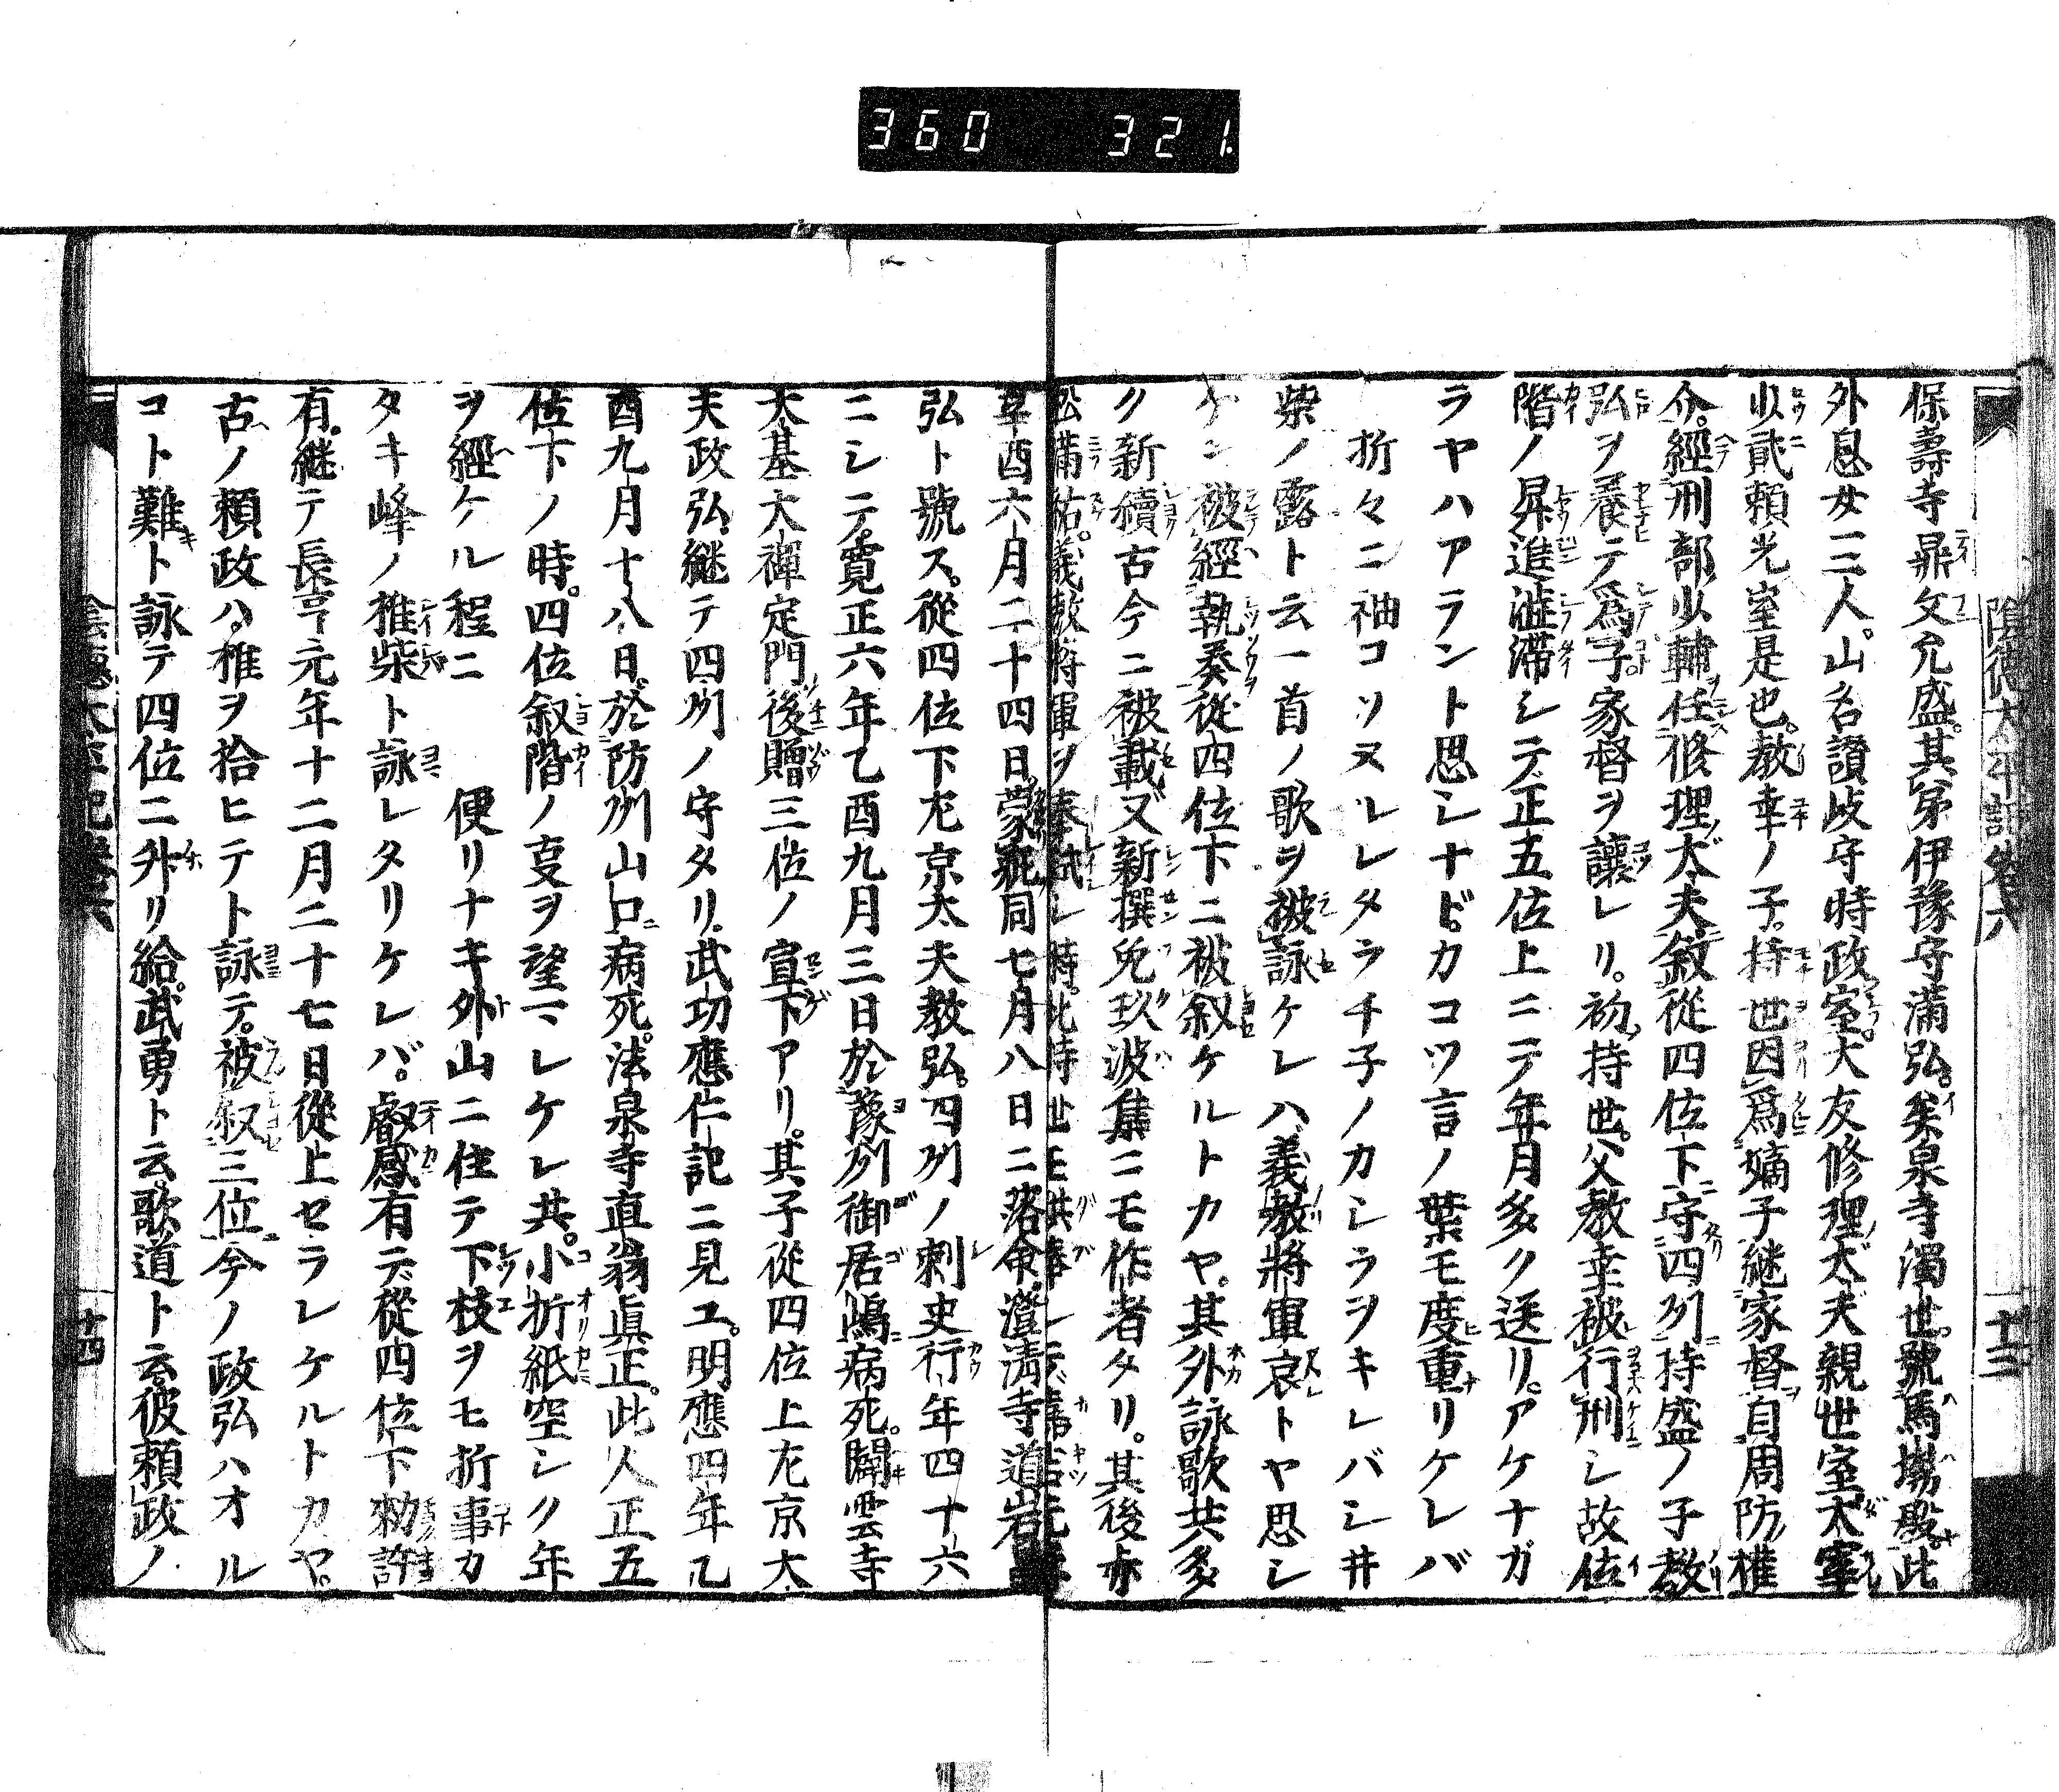 360 321.
陰德太平記卷六 十三
保壽寺鼎文允盛。其弟伊豫守滿弘。矣泉寺濁世。號馬塲殿。此
外息女二三人。山名讃岐守時政室。大友修理大夫親世室太宰
少貳頼光室是也。教幸ノ子。持世因爲嫡子継家督自周防權
介。經刑部少輔任修理大夫。敘從四位下守四列持盛ノ子教
弘ヲ養テ爲子。家督ヲ讓レリ。初持世。父教幸被行刑シ故。位
階ノ昇進澁滞シテ。正五位上ニテ年月多ク送リ。アケナガ
ラヤハアラント思シナドカコツ言ノ葉モ度重リケレバ
折々ニ袖コソヌレレタラチ子ノカシラヲキレバシ井
柴ノ露ト云一首ノ歌ヲ被詠ケレハ義教將軍哀トヤ思シ
ケン被經執奏從四位下ニ被叙ケルトカヤ。其外詠歌共多
ク新續古今ニ被載又新撰兎玖波集ニモ作者タリ。其後赤
松滿祐。義教將軍ヲ奉弑シ時。此持世モ供奉シ嘉吉元年
辛酉六月二十四日。蒙疵同七月八日ニ落命澄淸寺道岩
弘ト號ス。從四位下左京大夫教弘。四列ノ刺史行年四十六
ニシテ。寛正六年乙酉九月三日於豫列御居嶋病死。闢雲寺
大基大禪定門後贈三位ノ宣下アリ。其子從四位上左京大
夫政弘。継テ四列ノ守タリ。武功應仁記ニ見ユ。明應四年乙
酉九月十八日。於防州山口病死。法泉寺直翁眞正。此人正五
位下ノ時。四位叙階ノ叓ヲ望マレケレ共。小折紙空シク年
ヲ經ケル程ニ 便リナキ外山ニ住テ下枝ヲモ折事カ
タキ峰ノ椎柴ト詠レタリケレバ。叡感有テ。從四位下勅許
有。継テ長享元年十二月二十七日從上セラレケルトカヤ。
古ノ頼政ハ椎ヲ拾ヒテト詠テ。被叙三位。今ノ政弘ハオル
コト難ト詠テ四位ニ外リ給。武勇ト云。歌道ト云彼頼政ノ
陰德太平記卷六 十四